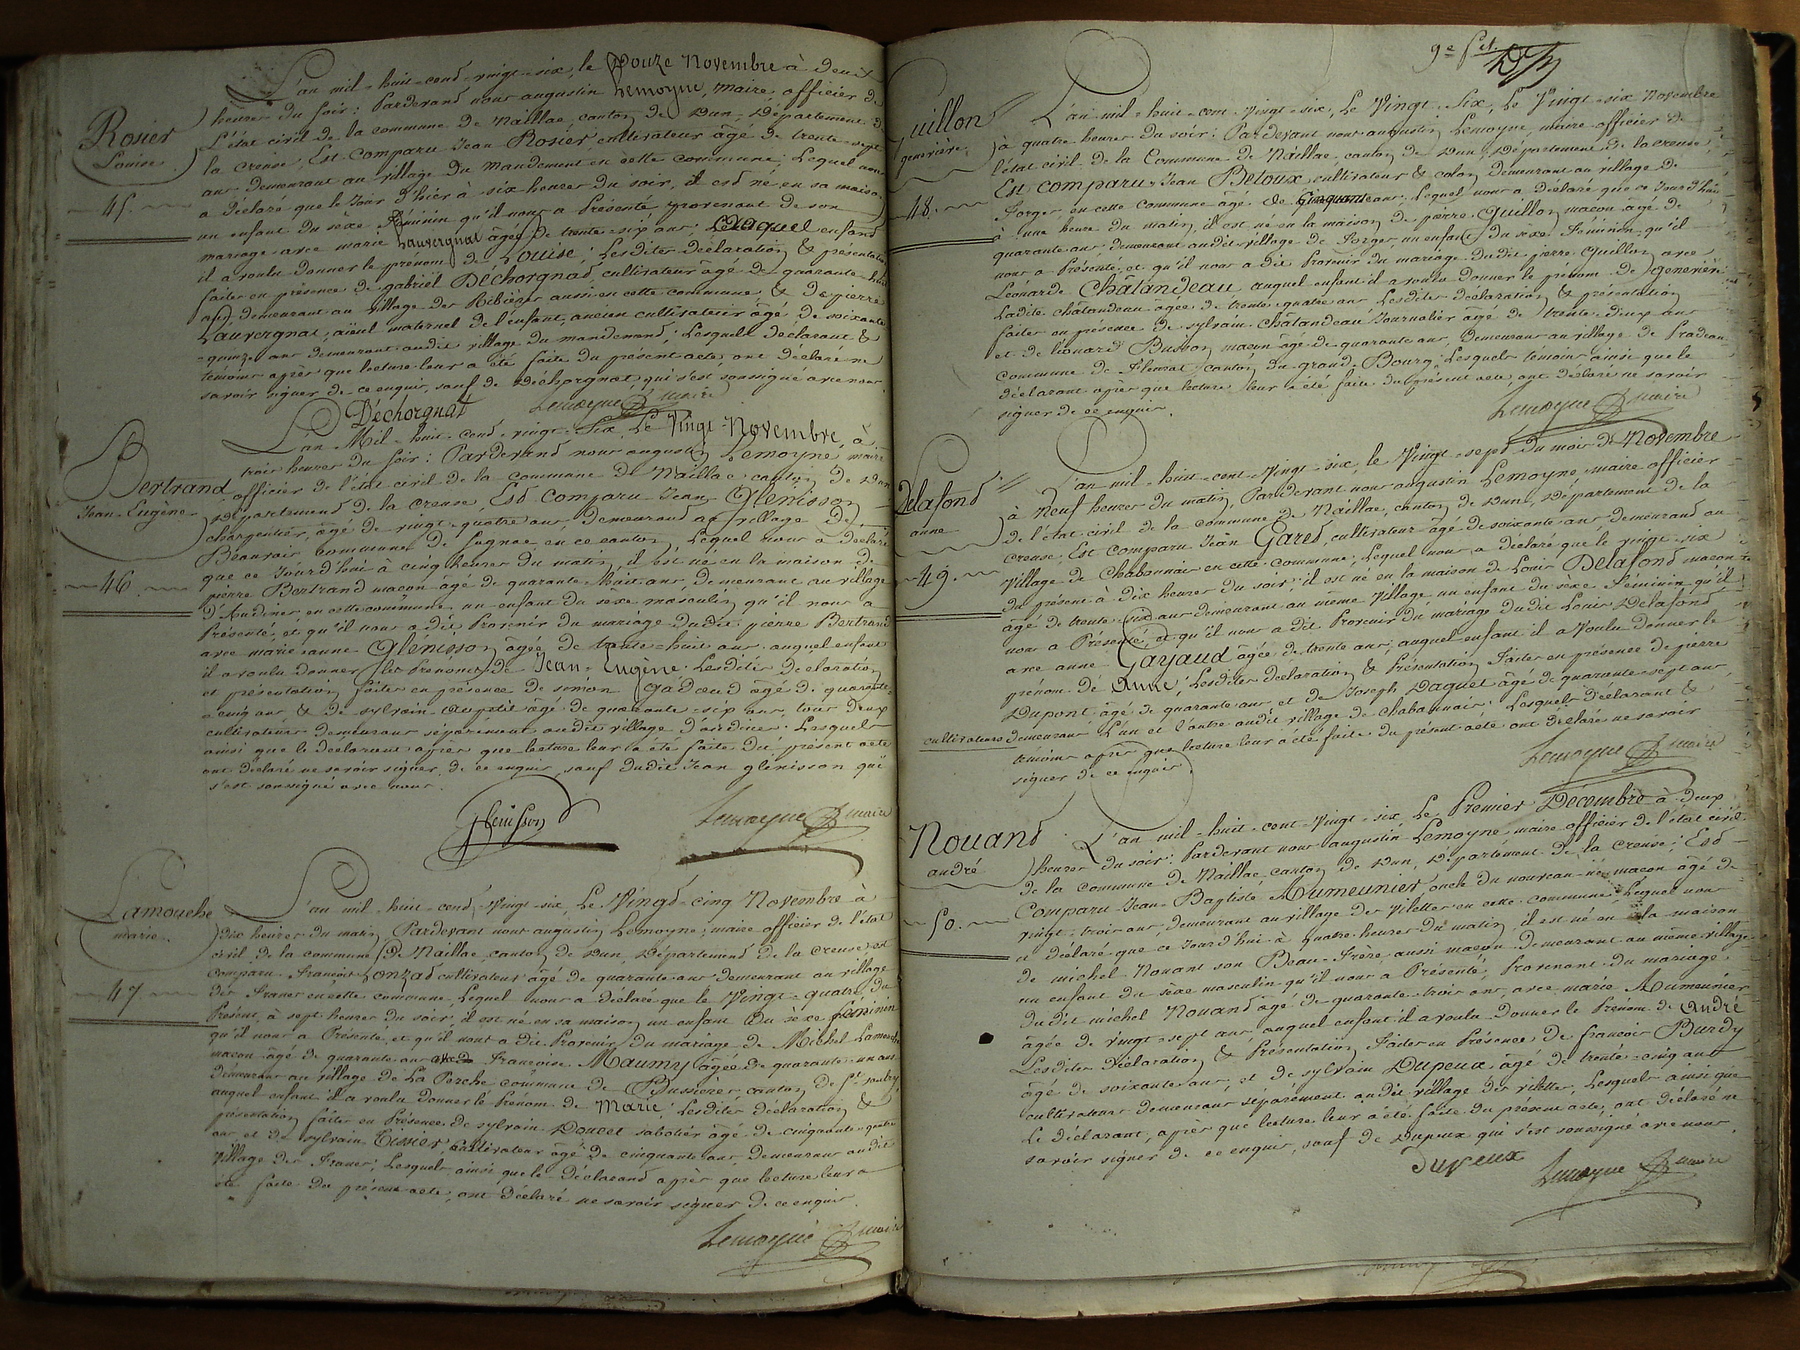 L'an mil-huit-cent-vingt-six, le Douze Novembre à deux
heures du soir: Pardevant nous augustin Lemoyne, maire officier de
L'état civil de la commune de Naillac, canton de Dun, Département de
la creuse, Est Comparu Jean Rosier cultivateur âgé de trente-sept
ans demeurant au village du Mandement en cette commune; Lequel nous
a déclaré que le Jour D'hier à six heures du soir, il est né en sa maison
un enfant du sèxe Féminin qu'il nous a Présenté provenant de son
mariage avec marie Lauvergnat âgée de trente-six ans; auquel enfant
il a voulu donner le prénom de Louise; Lesdites déclaration & présentation
faites en présence de gabriel Déchorgnat cultivateur âgé de quarante-huit
ans, demeurant au village des Ribières aussi en cette commune & de pierre
Lauvergnat, aïeul maternel de l'enfant, ancien cultivateur âgé de soixante
-quinze ans demeurant audit village du mandement; Lesquels déclarant &
témoins après que lecture leur a été faite du présent acte, ont déclaré ne
savoir signer de ce enquis, sauf de Déchorgnat, qui s'est soussigné avec nous.
Déchorgnat Lemoyne maire
Rosier
Louise
45.
L'an Mil-huit-cent-vingt-Six, Le Vingt-Novembre, à
trois heures du soir: Pardevant nous augustin Lemoyne maire
officier de l'état civil de la commune de Naillac canton de Dun
Département de la creuse, Est Comparu Jean Glenisson
charpentier, âgé de vingt-quatre ans, demeurant au village de
Beauvais commune de Sagnac, en ce canton, Lequel nous a déclaré
que ce Jourd'hui à cinq heures du matin, il est né en la maison de
pierre Bertrand maçon âgé de quarante-huit ans, demeurant au village
D'Audines, en cette commune un enfant du sèxe masculin qu'il nous a
Présenté, et qu'il nous a dit, Provenir du mariage dudit pierre Bertrand
avec marie anne Glénisson âgée de trente huit ans auquel enfant
il a voulu donner les Prénoms de Jean-Eugène: Lesdites déclaration
et présentation faites en présence de simon âgé de quarante-
-cinq ans, & de sylvain Aupetit âgé de quarante-six ans, tous deux
cultivateurs demeurans séparément audit village d'audines: Lesquels
ainsi que le déclarant après que lecture leur a été faite du présent acte
ont déclaré ne savoir signer de ce enquis, sauf dudit Jean glénisson qui
s'est soussigné avec nous.
Glenisson Lemoyne maire
Bertrand
Jean-Eugène
46
L'an mil-huit-cent-Vingt-six, Le Vingt-cinq Novembre à
dix heures du matin Pardevant nous augustin Lemoyne, maire officier de l'état
civil de la commune de Naillac, canton de Dun, Département de la Creuse, est
comparu François Lonzat cultivateur âgé de quarante ans demeurant au village
des Franes en cette commune Lequel nous a déclaré que le Vingt-quatre du
Présent, à sept heures du soir, il est né en sa maison un enfant du sèxe féminin
qu'il nous a Présenté, et qu'il nous a dit Provenir du mariage de Michel Lamouche
maçon âgé de quarante ans avec Françoise Maumy âgée de quarante-un ans
demeurans au village de La Porche commune de Bussière, canton de
auquel enfant il a voulu donner le Prénom de Marie: Lesdites déclaration &
présentation faites en Présence de sylvain Doucet sabotier âgé de cinquante-quatre
ans et de sylvain Tissier, cultivateur âgé de cinquante ans, demeurans audit
village des Franes, Lesquels ainsi que le Déclarant après que lecture leur a
été faite du présent acte, ont déclaré ne savoir signer de ce enquis.
Lemoyne maire
Lamouche
marie
47
9e
L'an mil-huit-cent-Vingt-six, Le Vingt-Six, Le Vingt-six Novembre
à quatre heures du soir: Pardevant nous augustin Lemoyne, maire officier de
l'état civil de la Commune de Naillac, canton de Dun, Département de la creuse,
Est comparu Jean Beloux cultivateur & colon Demeurant au village de
Forges, en cette Commune âgé de Cinquante ans: Lequel nous a déclaré que ce Jourd'hui
à une heure du matin, il est né en la maison de pierre Guillon, maçon âgé de
quarante ans, demeurant audit village de Forges, un enfant du sexe Féminin qu'il
nous a Présenté, et qu'il nous a dit Provenir du mariage dudit pierre Guillon avec
Léonarde Châtandeau auquel enfant il a voulu donner le prénom de Geneviève
Ladite châtandeau âgée de trente-quatre ans Lesdites déclaration & présentation
faites en présence de sylvain Châtandeau Journalier âgé de trente-deux ans
et de léonard Busson maçon âgé de quarante ans, Demeurans au village de Pradeau
commune de Fleurat canton du grand-Bourg; Lesquels témoins ainsi que le
déclarant après que lecture leur a été faite du présent acte, ont déclaré ne savoir
signer de ce enquis.
Lemoyne maire
Guillon
geneviève
48.
L'an mil-huit-cent-Vingt-six, le Vingt-sept du mois de Novembre
à Neuf heures du matin, Pardevant nous augustin Lemoyne, maire officier
de l'état civil de la commune de Naillac, canton de Dun, Département de la
creuse, Est Comparu Jean Garet, cultivateur âgé de soixante ans, demeurant au
Village de Chabannais en cette commune; Lequel nous a déclaré que le vingt-six
du présent à Dix heures du soir, il est né en la maison de Louis Delafond maçon
âgé de trente-six ans demeurant au même Village un enfant du sèxe Féminin qu'il
nous a Présenté, et qu'il nous a dit Provenir du mariage dudit Louis Delafond
avec anne Gayaud âgée de trente ans, auquel enfant il a Voulu donner le
prénom de Anne; Lesdites déclaration & Présentation Faites en présence de pierre
Dupont âgé de quarante ans et de Joseph Daquet âgé de quarante-sept ans,
cultivateurs demeurans L'un et l'autre audit village de Chabannais: Lesquels Déclarant &
témoins après que lecture leur a été faite du présent acte ont déclaré ne savoir
signer de ce enquis.
Lemoyne maire
Delafond
anne
49.
L'an mil-huit-cent-Vingt-six, Le Premier Décembre à deux
heures du soir: Pardevant nous augustin Lemoyne maire officier de l'état civil
de la commune de Naillac canton de Dun, Département de la Creuse; Est
Comparu Jean-Baptiste Aumeunier, oncle du nouveau-né maçon âgé de
vingt-trois ans, demeurant au village des Vilettes en cette commune Lequel nous
a déclaré que ce Jourd'hui à Quatre heures du matin, il est né en la maison
de michel Nouant son Beau-Frère aussi maçon demeurant au même village
un enfant du sèxe masculin qu'il nous a Présenté, Provenant du mariage
dudit michel Nouant âgé de quarante-trois ans, avec marie Aumeunier
âgée de vingt-sept ans, auquel enfant il a voulu donner le Prénom de André
Lesdites Déclaration & Présentation Faites en Présence de françois Burdy
âgé de soixante ans, et de sylvain Dupeux âgé de trente-cinq ans
cultivateurs demeurans séparément audit village des vilettes, Lesquels ainsi que
Le déclarant, après que lecture leur a été faite du présent acte, ont déclaré ne
savoir signer de ce enquis, sauf de Dupeux qui s'est soussigné avec nous.
Dupeux Lemoyne maire
Nouant
andré
50.